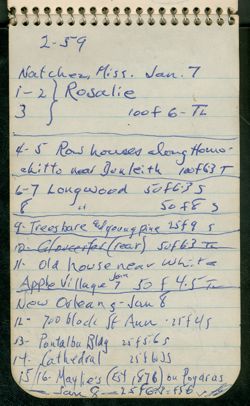 2-59
Natchez, Miss. Jan. 7
1-2 } Rosalie
3 100 f 6 - TL
4-5 Row houses along Homo-
chitto near Dunleith 100 f 6.3 T
6-7 Longwood 50 f 6.3 S
8 " 50 f 8 S
9- Trees bare & young pine 25 f 9 S
10- Gloucester (rear) 50 f 6.3 TL
11- Old house near White
Apple Village 7 Jan 50 f 4.5 TL
New Orleans - Jan 8
12- 700 block St Ann - 25 f 4 S
13- Pontalba Bldg 25 f 5.6 S
14- Cathedral 25 f
15/16- Maylie's (Est 1876) on Poydras
Jan 8 - 25 f